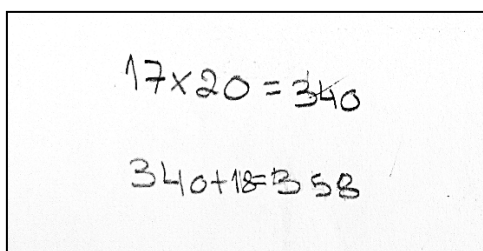 17×20=340
340+18=358